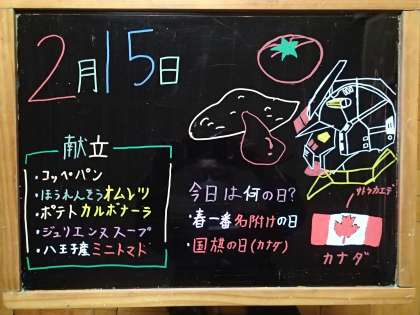 2月15日
献立
・コッペパン
・ほうれんそうオムレツ
・ポテトカルボナーラ
・ジュリエンヌスープ
・八王子産ミニトマト
今日は何の日?
・春一番名付けの日
・国旗の日(カナダ)
サトウカエデ
カナダ